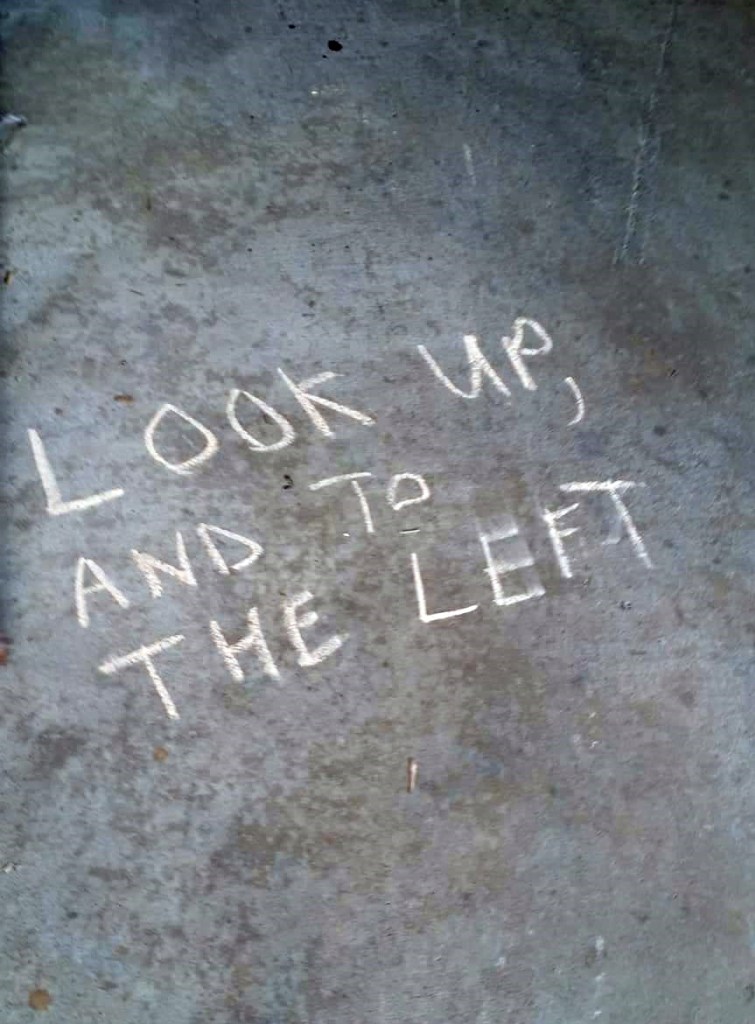 LOOK UP,
AND TO
THE LEFT